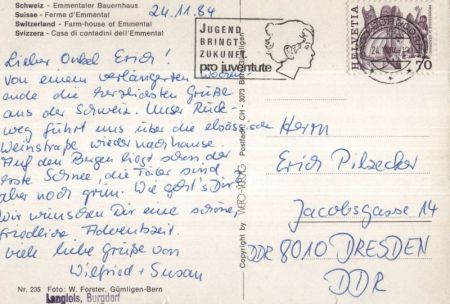 Schweiz - Emmentaler Bauernhaus
Suisse - Ferme d'Emmental
Switzerland - Farm-house of Emmental
Svizzera - Casa di contadini dell'Emmental
24.11.84
Lieber Onkel Erich!
Von einem verlängerten Wochen-
ende die herzlichsten Grüße
aus der Schweiz. Unser Rück-
weg führt uns über die elsässische
Weinstraße wieder nach Hause.
Auf den Bergen liegt schon der
erste Schnee, die Täler sind
aber noch grün. Wie geht's Dir?
Wir wünschen Dir eine schöne,
friedliche Adventszeit.
Viele liebe Grüße von
Wilfried + Susan
Nr. 235 Foto: W. Forster, Gümligen-Bern
Langlois, Burgdorf
Copyright by
Postfach CH - 3073 Gümligen
JUGEND
BRINGT
ZUKUNFT
pro juventute
HELVETIA
70
Herrn
Erich Pilzecker
Jacobsgasse 14
DDR 8010 DRESDEN
DDR